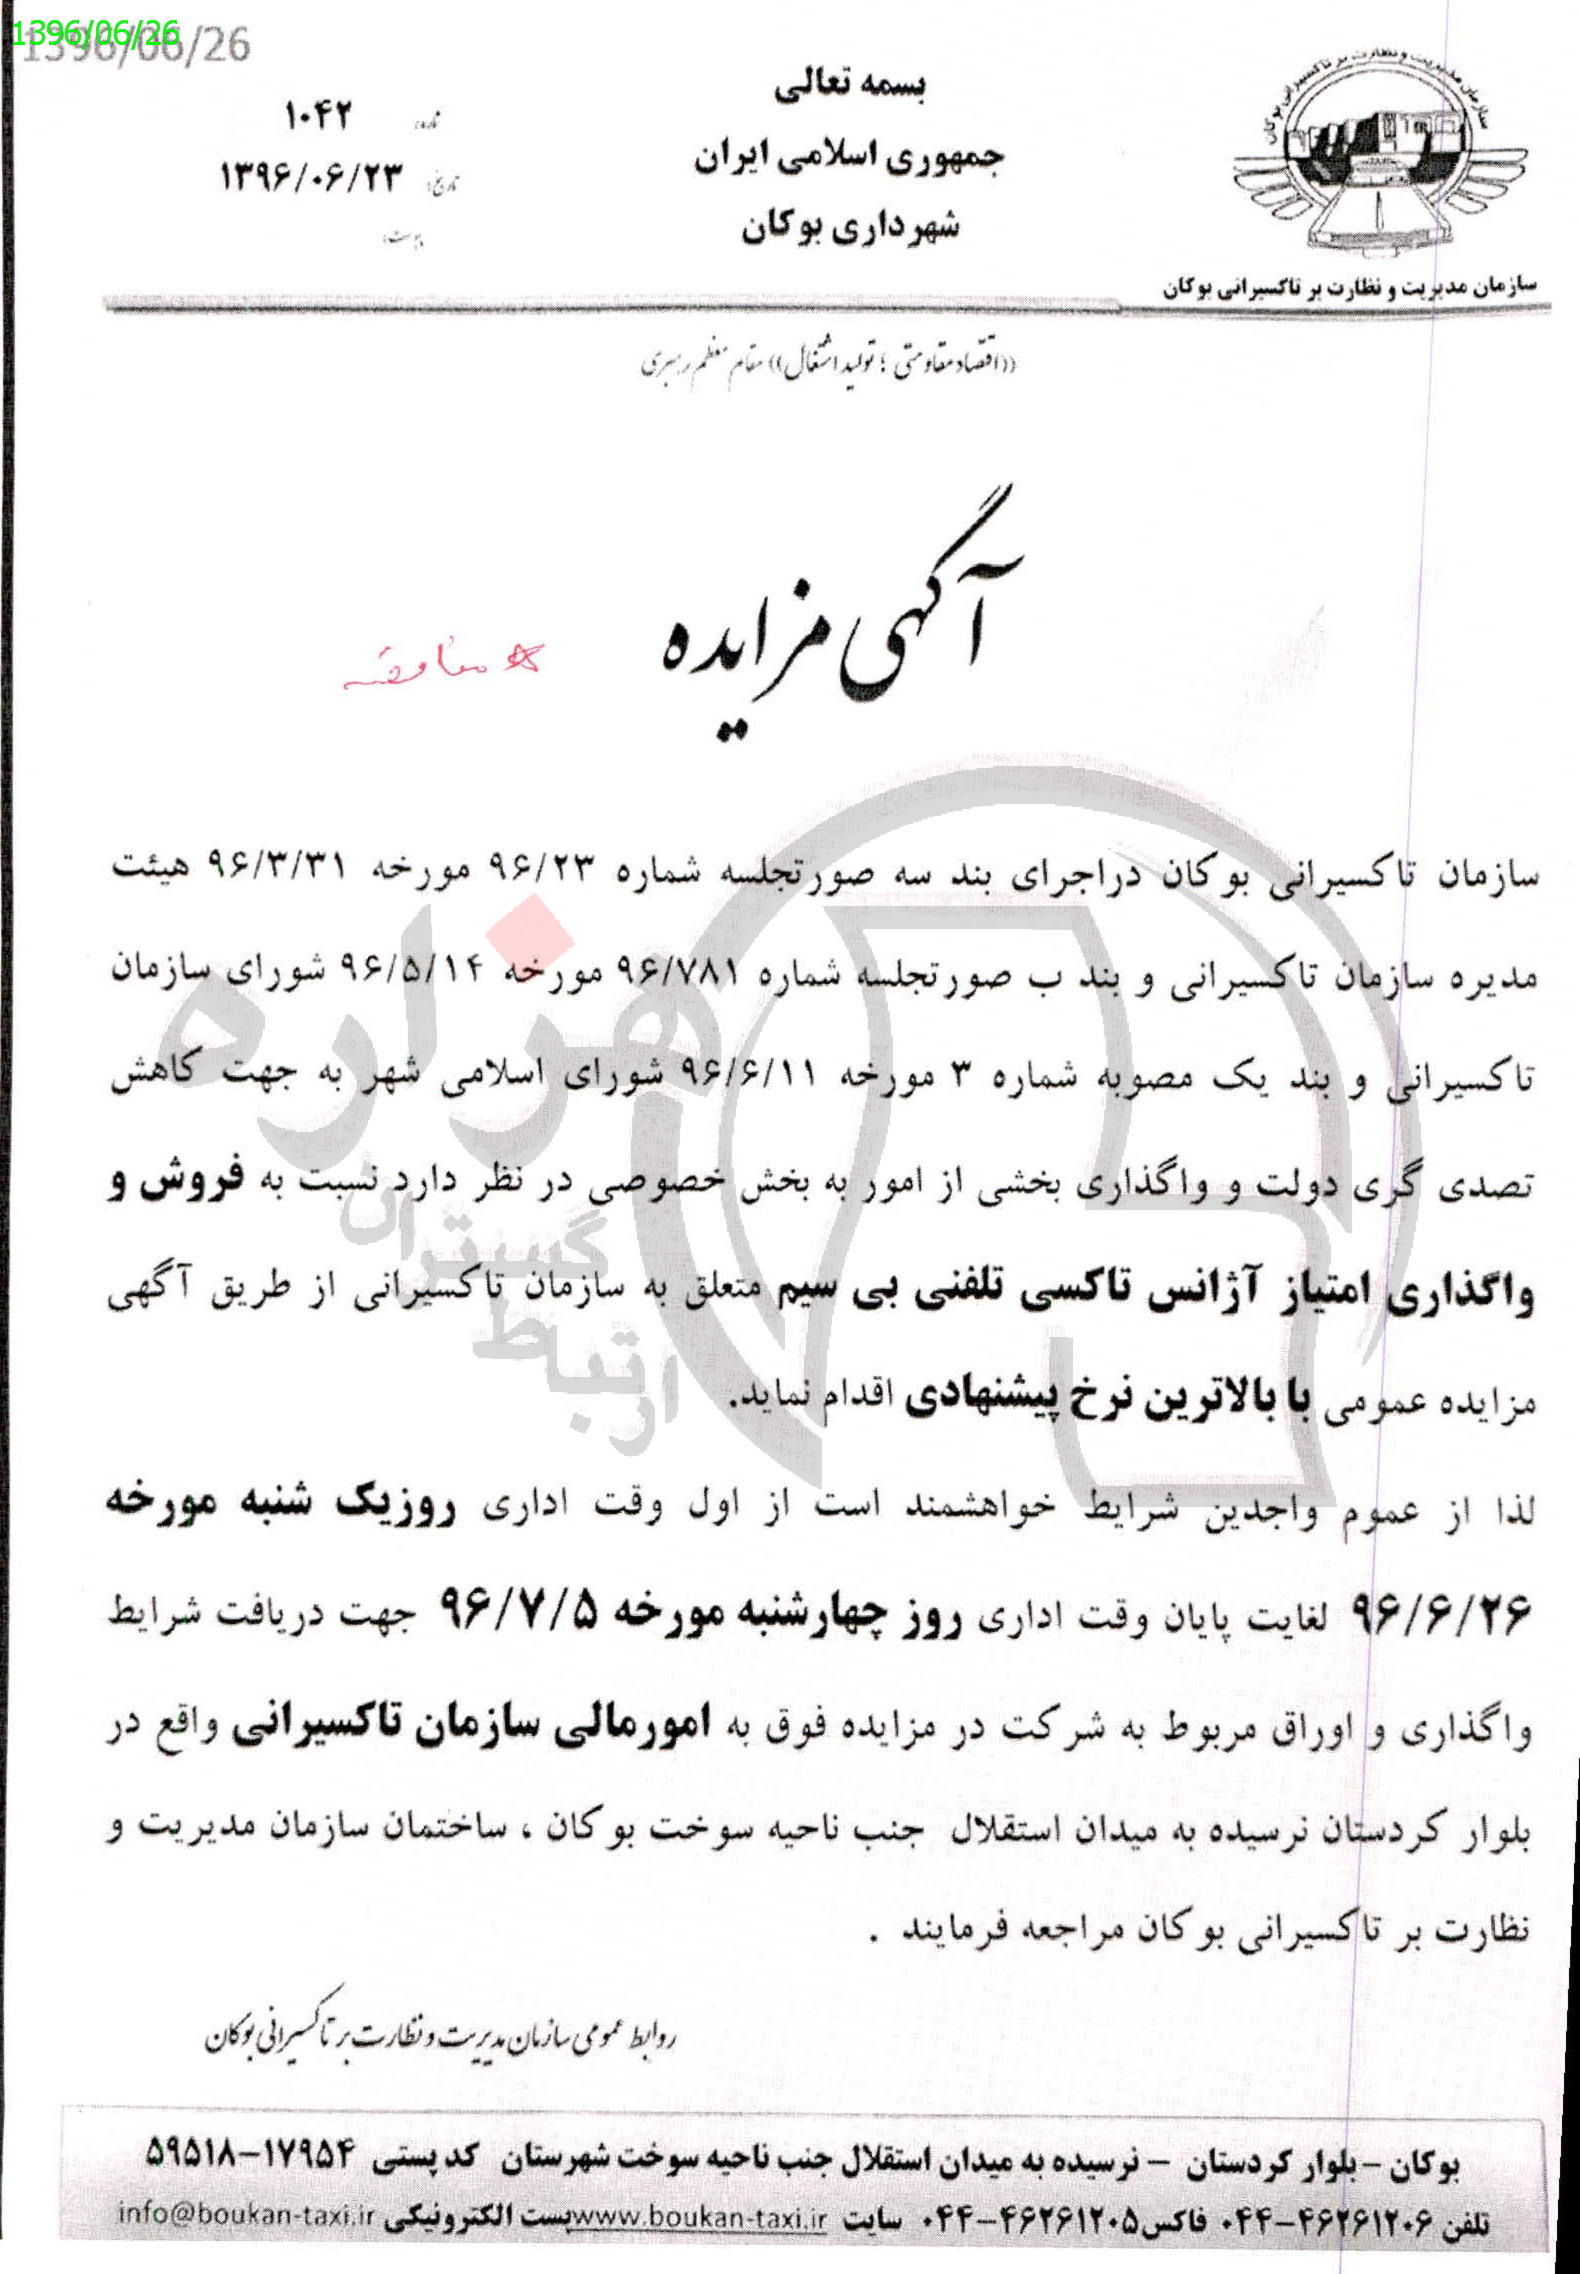 1396/06/26
1396/06/26
بسمه تعالی
جمهوری اسلامی ایران
شهرداری بوکان
۱۰۴۲
تاریخ: ۱۳۹۶/۰۶/۲۳
پیوست:
سازمان مدیریت و نظارت بر تاکسیرانی بوکان
سازمان مدیریت و نظارت بر تاکسیرانی بوکان
((اقتصاد مقاومتی ؛ تولید اشتغال)) مقام معظم رهبری
آگهی مزایده
سازمان تاکسیرانی بوکان دراجرای بند سه صورتجلسه شماره ۹۶/۲۳ مورخه ۹۶/۳/۳۱ هیئت
مدیره سازمان تاکسیرانی و بند ب صورتجلسه شماره ۹۶/۷۸۱ مورخه ۹۶/۵/۱۴ شورای سازمان
تاکسیرانی و بند یک مصوبه شماره ۳ مورخه ۹۶/۶/۱۱ شورای اسلامی شهر به جهت کاهش
تصدی گری دولت و واگذاری بخشی از امور به بخش خصوصی در نظر دارد نسبت به فروش و
واگذاری امتیاز آژانس تاکسی تلفنی بی سیم متعلق به سازمان تاکسیرانی از طریق آگهی
مزایده عمومی با بالاترین نرخ پیشنهادی اقدام نماید.
لذا از عموم واجدین شرایط خواهشمند است از اول وقت اداری روزیک شنبه مورخه
۹۶/۶/۲۶ لغایت پایان وقت اداری روز چهارشنبه مورخه ۹۶/۷/۵ جهت دریافت شرایط
واگذاری و اوراق مربوط به شرکت در مزایده فوق به امورمالی سازمان تاکسیرانی واقع در
بلوار کردستان نرسیده به میدان استقلال جنب ناحیه سوخت بوکان ، ساختمان سازمان مدیریت و
نظارت بر تاکسیرانی بوکان مراجعه فرمایند .
هزاره
گستران
ارتباط
روابط عمومی سازمان مدیریت و نظارت بر تاکسیرانی بوکان
بوکان – بلوار کردستان – نرسیده به میدان استقلال جنب ناحیه سوخت شهرستان کد پستی ۱۷۹۵۴–۵۹۵۱۸
تلفن ۴۶۲۶۱۲۰۶–۰۴۴ فاکس۴۶۲۶۱۲۰۵–۰۴۴ سایت www.boukan-taxi.ir پست الکترونیکی info@boukan-taxi.ir